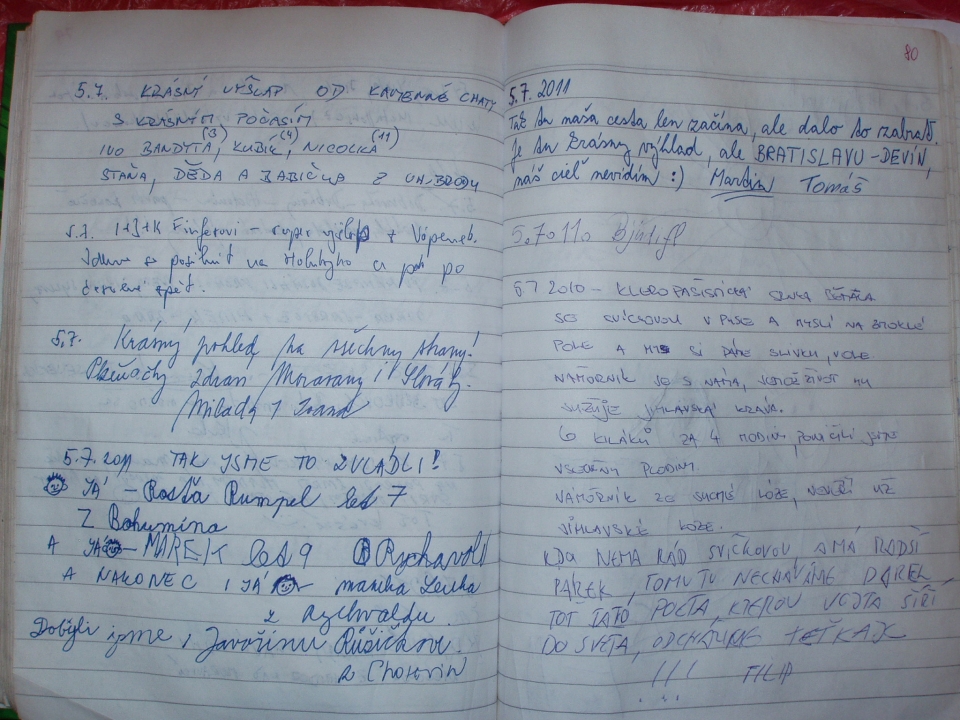 5.7. KRÁSNÝ VÝŠLAP OD KAMENNÉ CHATY
S KRÁSNÝM POČASÍM
(3) (4) (11)
IVO BANDYTA, KUBÍK, NICOLKA
STAŇA, DĚDA A BABIČKA Z UH. BRODU
5.7. I+J+K - super výšlap z Vápenek.
Jdeme se posilnit na Holubyho a pak po
červené zpět.
5.7. Krásný pohled na všechny strany!
Plzeňačky zdraví Moravany i Slováky.
Milada, Ivana
5.7. 2011 TAK JSME TO ZVLÁDLI!
JÁ - Rosťa Rumpel let 7
Z Bohumína
A JÁ - MAREK let 9 Rychvald
A NAKONEC I JÁ mamka Lenka
z Rychvaldu.
Dobyli jsme i Javořinu Růžičkovi
z Chotovin
80
5.7. 2011
Tak tu naša cesta len začína, ale dalo to zabrať.
Je tu krásny výhľad, ale BRATISLAVU-DEVÍN,
náš cieľ nevidím :) Martin Tomáš
5.7.2010 - KLEROFAŠISTICKÁ
SE SVÍČKOVOU V PUSE A MYSLÍ NA ZMOKLÉ
POLE A MY SI DÁME SLIVKU, VOLE
NÁMOŘNÍK JE S NAMA, JENOŽ ŽIVOT MU
SUŽUJE JIHLAVSKÁ KRÁVA.
6 KILÁKŮ ZA 4 HODINY, JSME
VŠECHNY PLODINY.
NÁMOŘNÍK ZE SUCHÉ LOŽE, NEVĚŘÍ UŽ
JIHLAVSKÉ
KDO NEMÁ RÁD SVÍČKOVOU A MÁ RADŠI
PÁREK, TOMU TU NECHÁVÁME DÁREK,
TOŤ TATO POCTA, KTEROU VOJTA ŠÍŘÍ
DO SVĚTA, ODCHÁZÍME TEŤKAJX
!!! FILIP